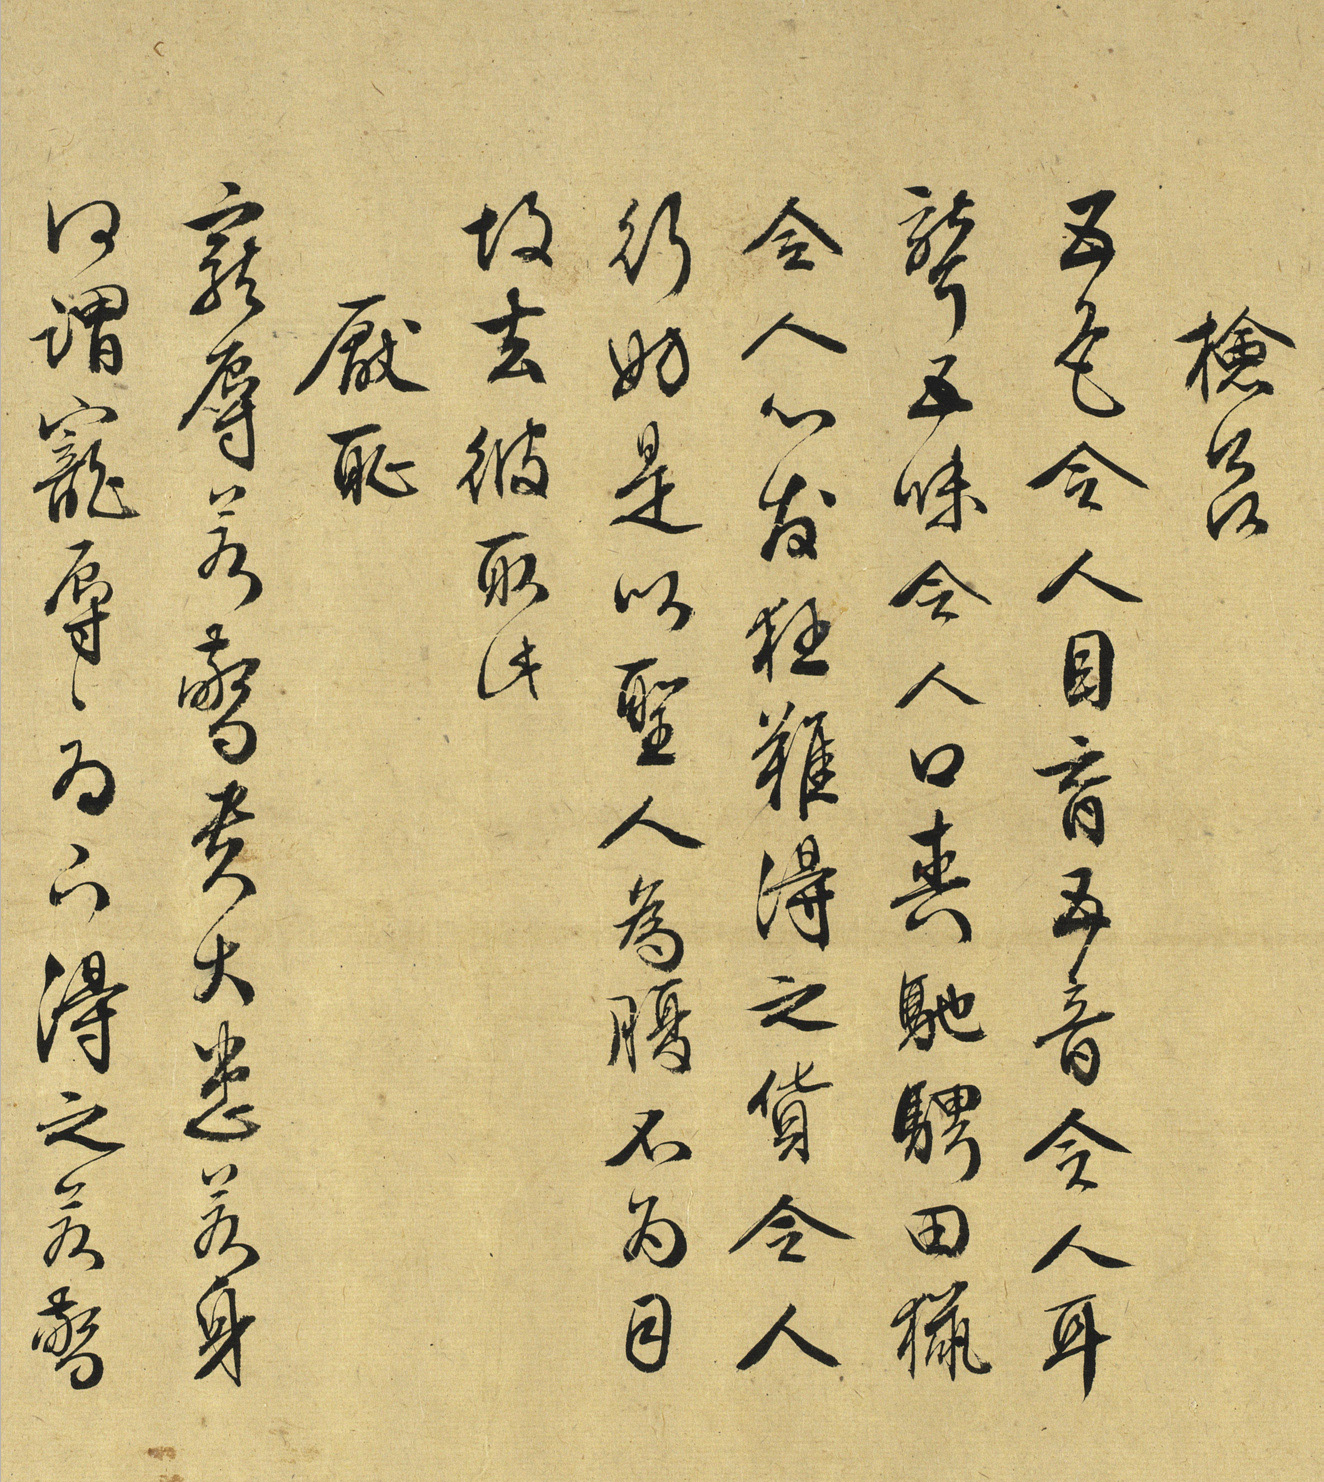 檢欲
五色令人目盲五音令人耳
聾五味令人口爽馳騁田獵
令人心發狂難得之貨令人
行妨是以聖人為腹不為目
故去彼取此
厭耻
寵辱若驚貴大患若身
何謂寵辱〻為下得之若驚